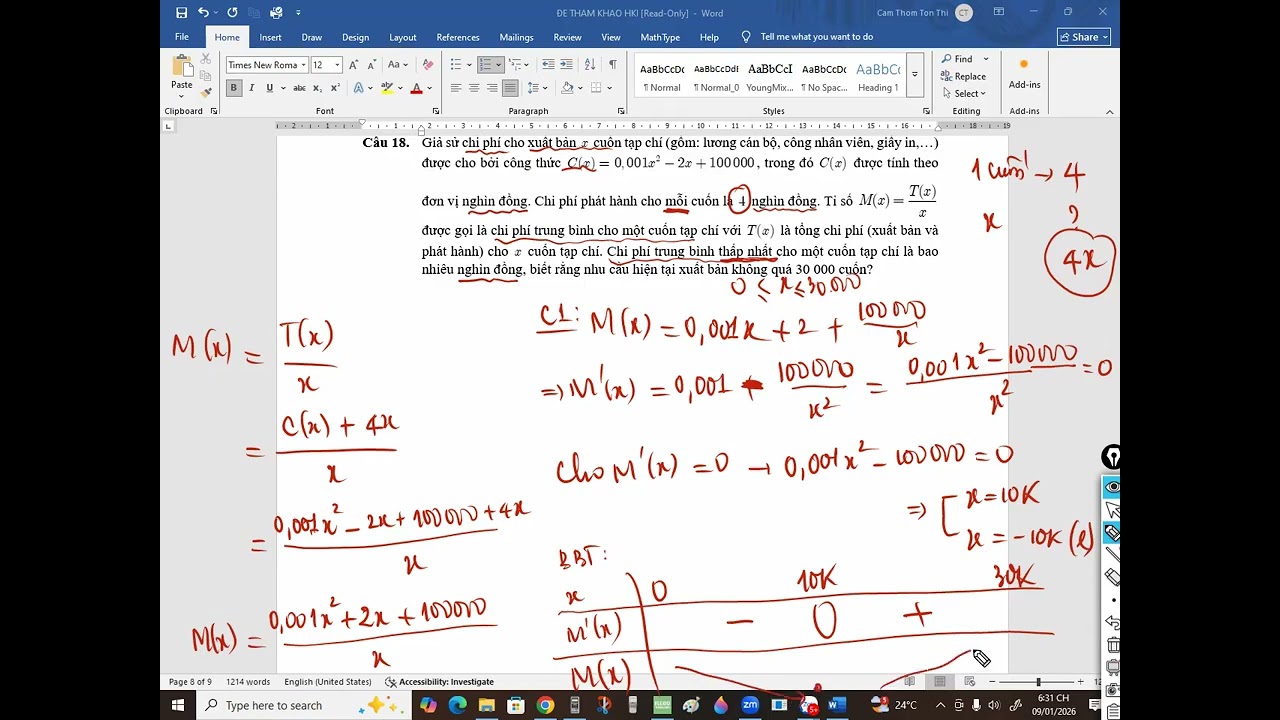 ĐE THAM KHAO HKI [Read-Only] - Word
Cam Thom Ton Thi CT
File Home Insert Draw Design Layout References Mailings Review View MathType Help Tell me what you want to do Share
Times New Roma 12
Paste
AaBbCcDc AaBbCcDdI AaBbCcI AaBbCcDc AaBbCcI
¶ Normal ¶ Normal_0 YoungMix... ¶ No Spac... Heading 1
Find
Replace
Select
Add-ins
Clipboard Font Paragraph Styles Editing Add-ins
Câu 18. Giả sử chi phí cho xuất bản x cuốn tạp chí (gồm: lương cán bộ, công nhân viên, giấy in,…)
được cho bởi công thức C(x) = 0,001x² − 2x + 100 000, trong đó C(x) được tính theo
đơn vị nghìn đồng. Chi phí phát hành cho mỗi cuốn là 4 nghìn đồng. Tỉ số M(x) = T(x)/x
được gọi là chi phí trung bình cho một cuốn tạp chí với T(x) là tổng chi phí (xuất bản và
phát hành) cho x cuốn tạp chí. Chi phí trung bình thấp nhất cho một cuốn tạp chí là bao
nhiêu nghìn đồng, biết rằng nhu cầu hiện tại xuất bản không quá 30 000 cuốn?
1 cuốn → 4
x ?
4x
0 ≤ x ≤ 30000
M(x) = T(x)/x
= C(x) + 4x / x
= 0,001x² − 2x + 100000 + 4x / x
M(x) = 0,001x² + 2x + 100000 / x
C1: M(x) = 0,001x + 2 + 100000/x
⇒ M'(x) = 0,001 - 100000/x² = 0,001x² − 100000 / x² = 0
Cho M'(x) = 0 → 0,001x² − 100000 = 0
⇒ [ x = 10K
x = −10K (l)
BBT:
x 0 10K 30K
M'(x) − 0 +
M(x)
Page 8 of 9 1214 words English (United States) Accessibility: Investigate
Type here to search
24°C
6:31 CH
09/01/2026